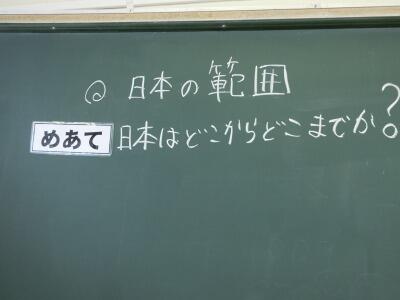 ◎ 日本の範囲
めあて 日本はどこからどこまでか？